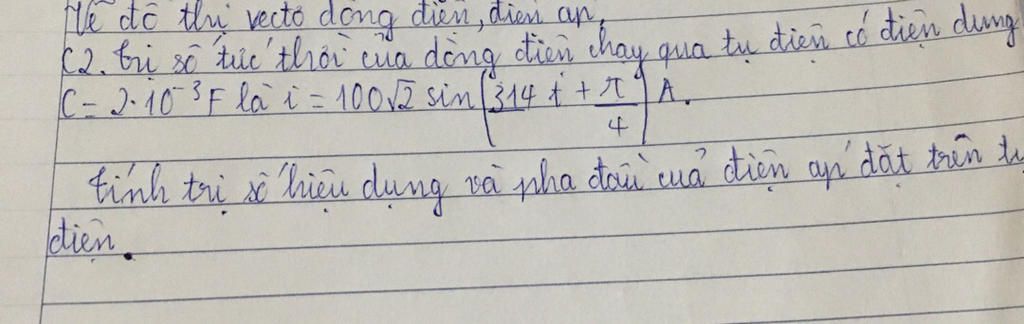 Vẽ đồ thị vectơ dòng điện, điện áp.
C2. Trị số tức thời của dòng điện chạy qua tụ điện có điện dung
C = 2.10⁻³F là i = 100√2 sin(314 t + π/4) A.
tính trị số hiệu dụng và pha đầu của điện áp đặt trên tụ
điện.